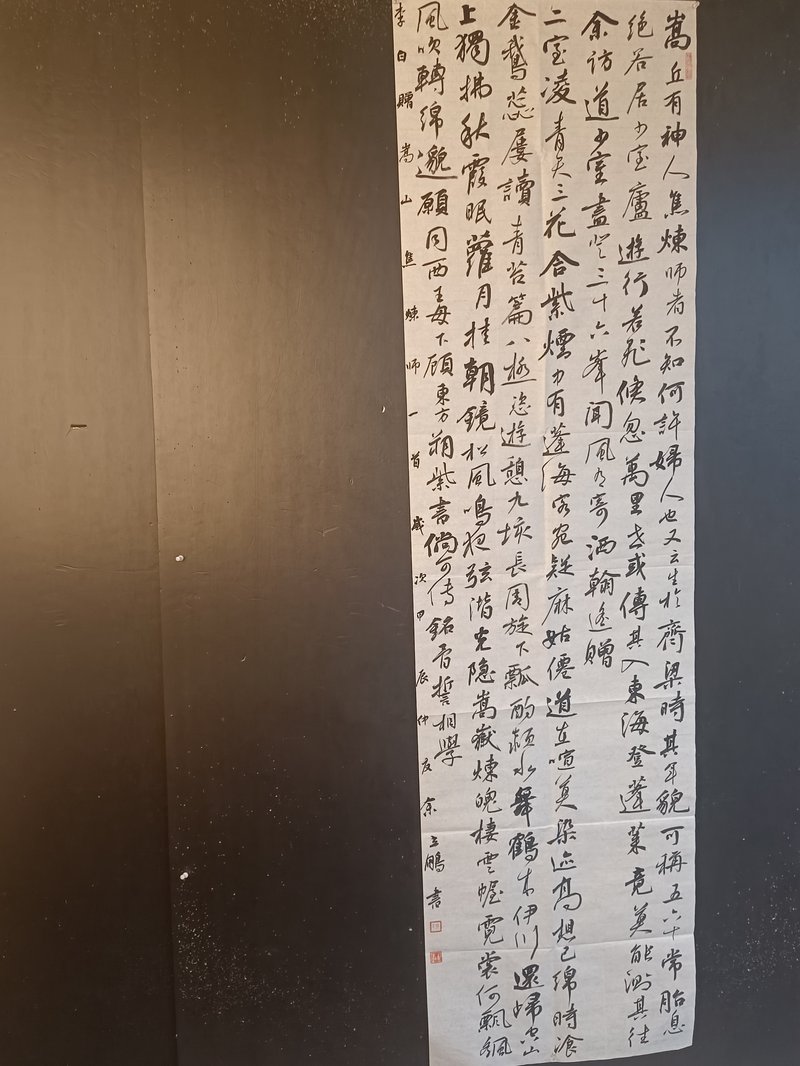 嵩丘有神人焦煉師者不知何許婦人也又云生於齊梁時其年貌可稱五六十常胎息
絕谷居少室廬遊行若飛倏忽萬里世或傳其入東海登蓬萊竟莫能測其往
余訪道少室盡登三十六峯聞風有寄洒翰遙贈
二室凌青天三花含紫煙中有蓬海客宛疑麻姑僊道在喧莫染迹高想已綿時飡
金鵝蕊屢讀青苔篇八極恣遊憩九垓長周旋下瓢酌潁水舞鶴來伊川還歸空山
上獨拂秋霞眠蘿月挂朝鏡松風鳴夜弦潛光隱嵩嶽煉魄棲雲幄霓裳何飄颻
風吹轉綿邈願同西王母下顧東方朔紫書倘可傳銘骨誓相學
李白贈嵩山焦煉師一首歲次甲辰仲夏余立鵬書